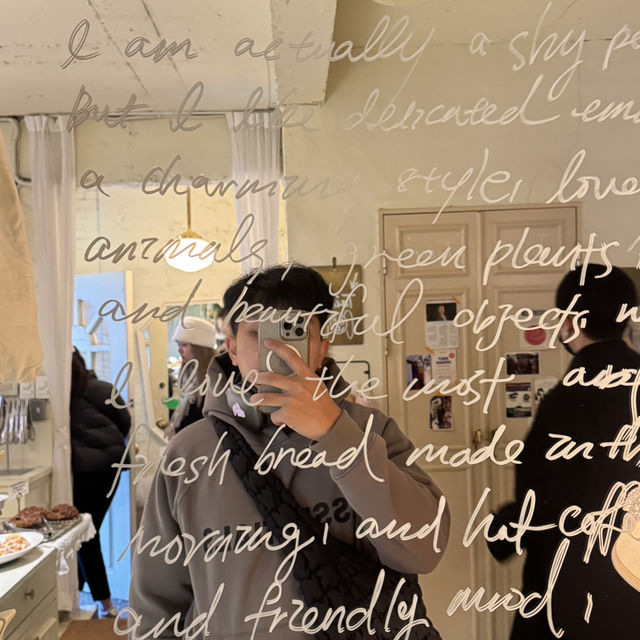 I am actually a shy pe
but I like delicated em
a charming style, love
animals, green plants
and beautiful objects
I love the most
fresh bread made in th
morning, and hot coff
and friendly mood,